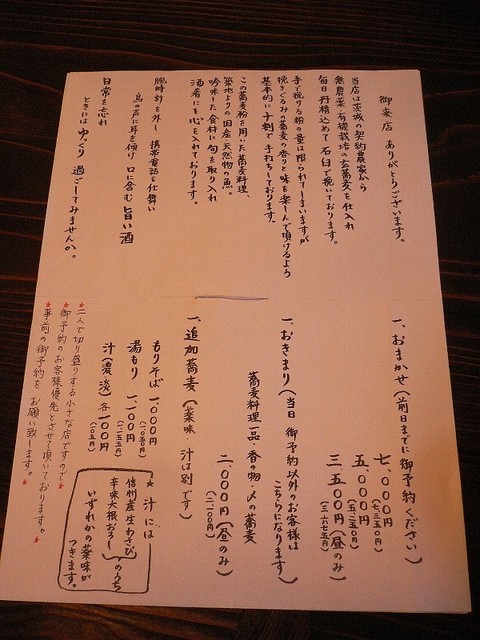 御来店 ありがとうございます。
当店は茨城の契約農家から
無農薬・有機栽培の玄蕎麦を仕入れ
毎日丹精込めて石臼で挽いております。
手で挽ける粉の量は限られてしまいますが
挽きぐるみの蕎麦の香りと味を楽しんで頂けるよう
基本的に十割で手打ちしております。
この蕎麦粉を用いた蕎麦料理、
築地よりの国産天然物の魚。
吟味した食材に旬を取り入れ
酒肴にも心を入れております。
腕時計を外し 携帯電話を仕舞い
鳥の声に耳を傾け 口に含む旨い酒
日常を忘れ
ときにはゆっくり 過ごしてみませんか。
一、おまかせ(前日までに御予約ください)
七、〇〇〇円(七、三五〇円)
五、〇〇〇円(五、二五〇円)
三、五〇〇円(昼のみ)(三、六七五円)
一、おきまり(当日 御予約以外のお客様は
こちらになります)
蕎麦料理一品・香の物・〆の蕎麦
二、〇〇〇円(昼のみ)
(二、一〇〇円)
一、追加蕎麦(薬味 汁は別です)
もりそば 一、〇〇〇円(一、〇五〇円)
湯もり 一、一〇〇円(一、一五五円)
汁(濃淡)各一〇〇円(一〇五円)
★汁には
信州産生わさび
辛味大根おろし のうち
いずれかの薬味が
つきます。
★二人で切り盛りする小さな店ですので★
★御予約のお客様優先とさせて頂いております。
★事前の御予約をお願い致します。★